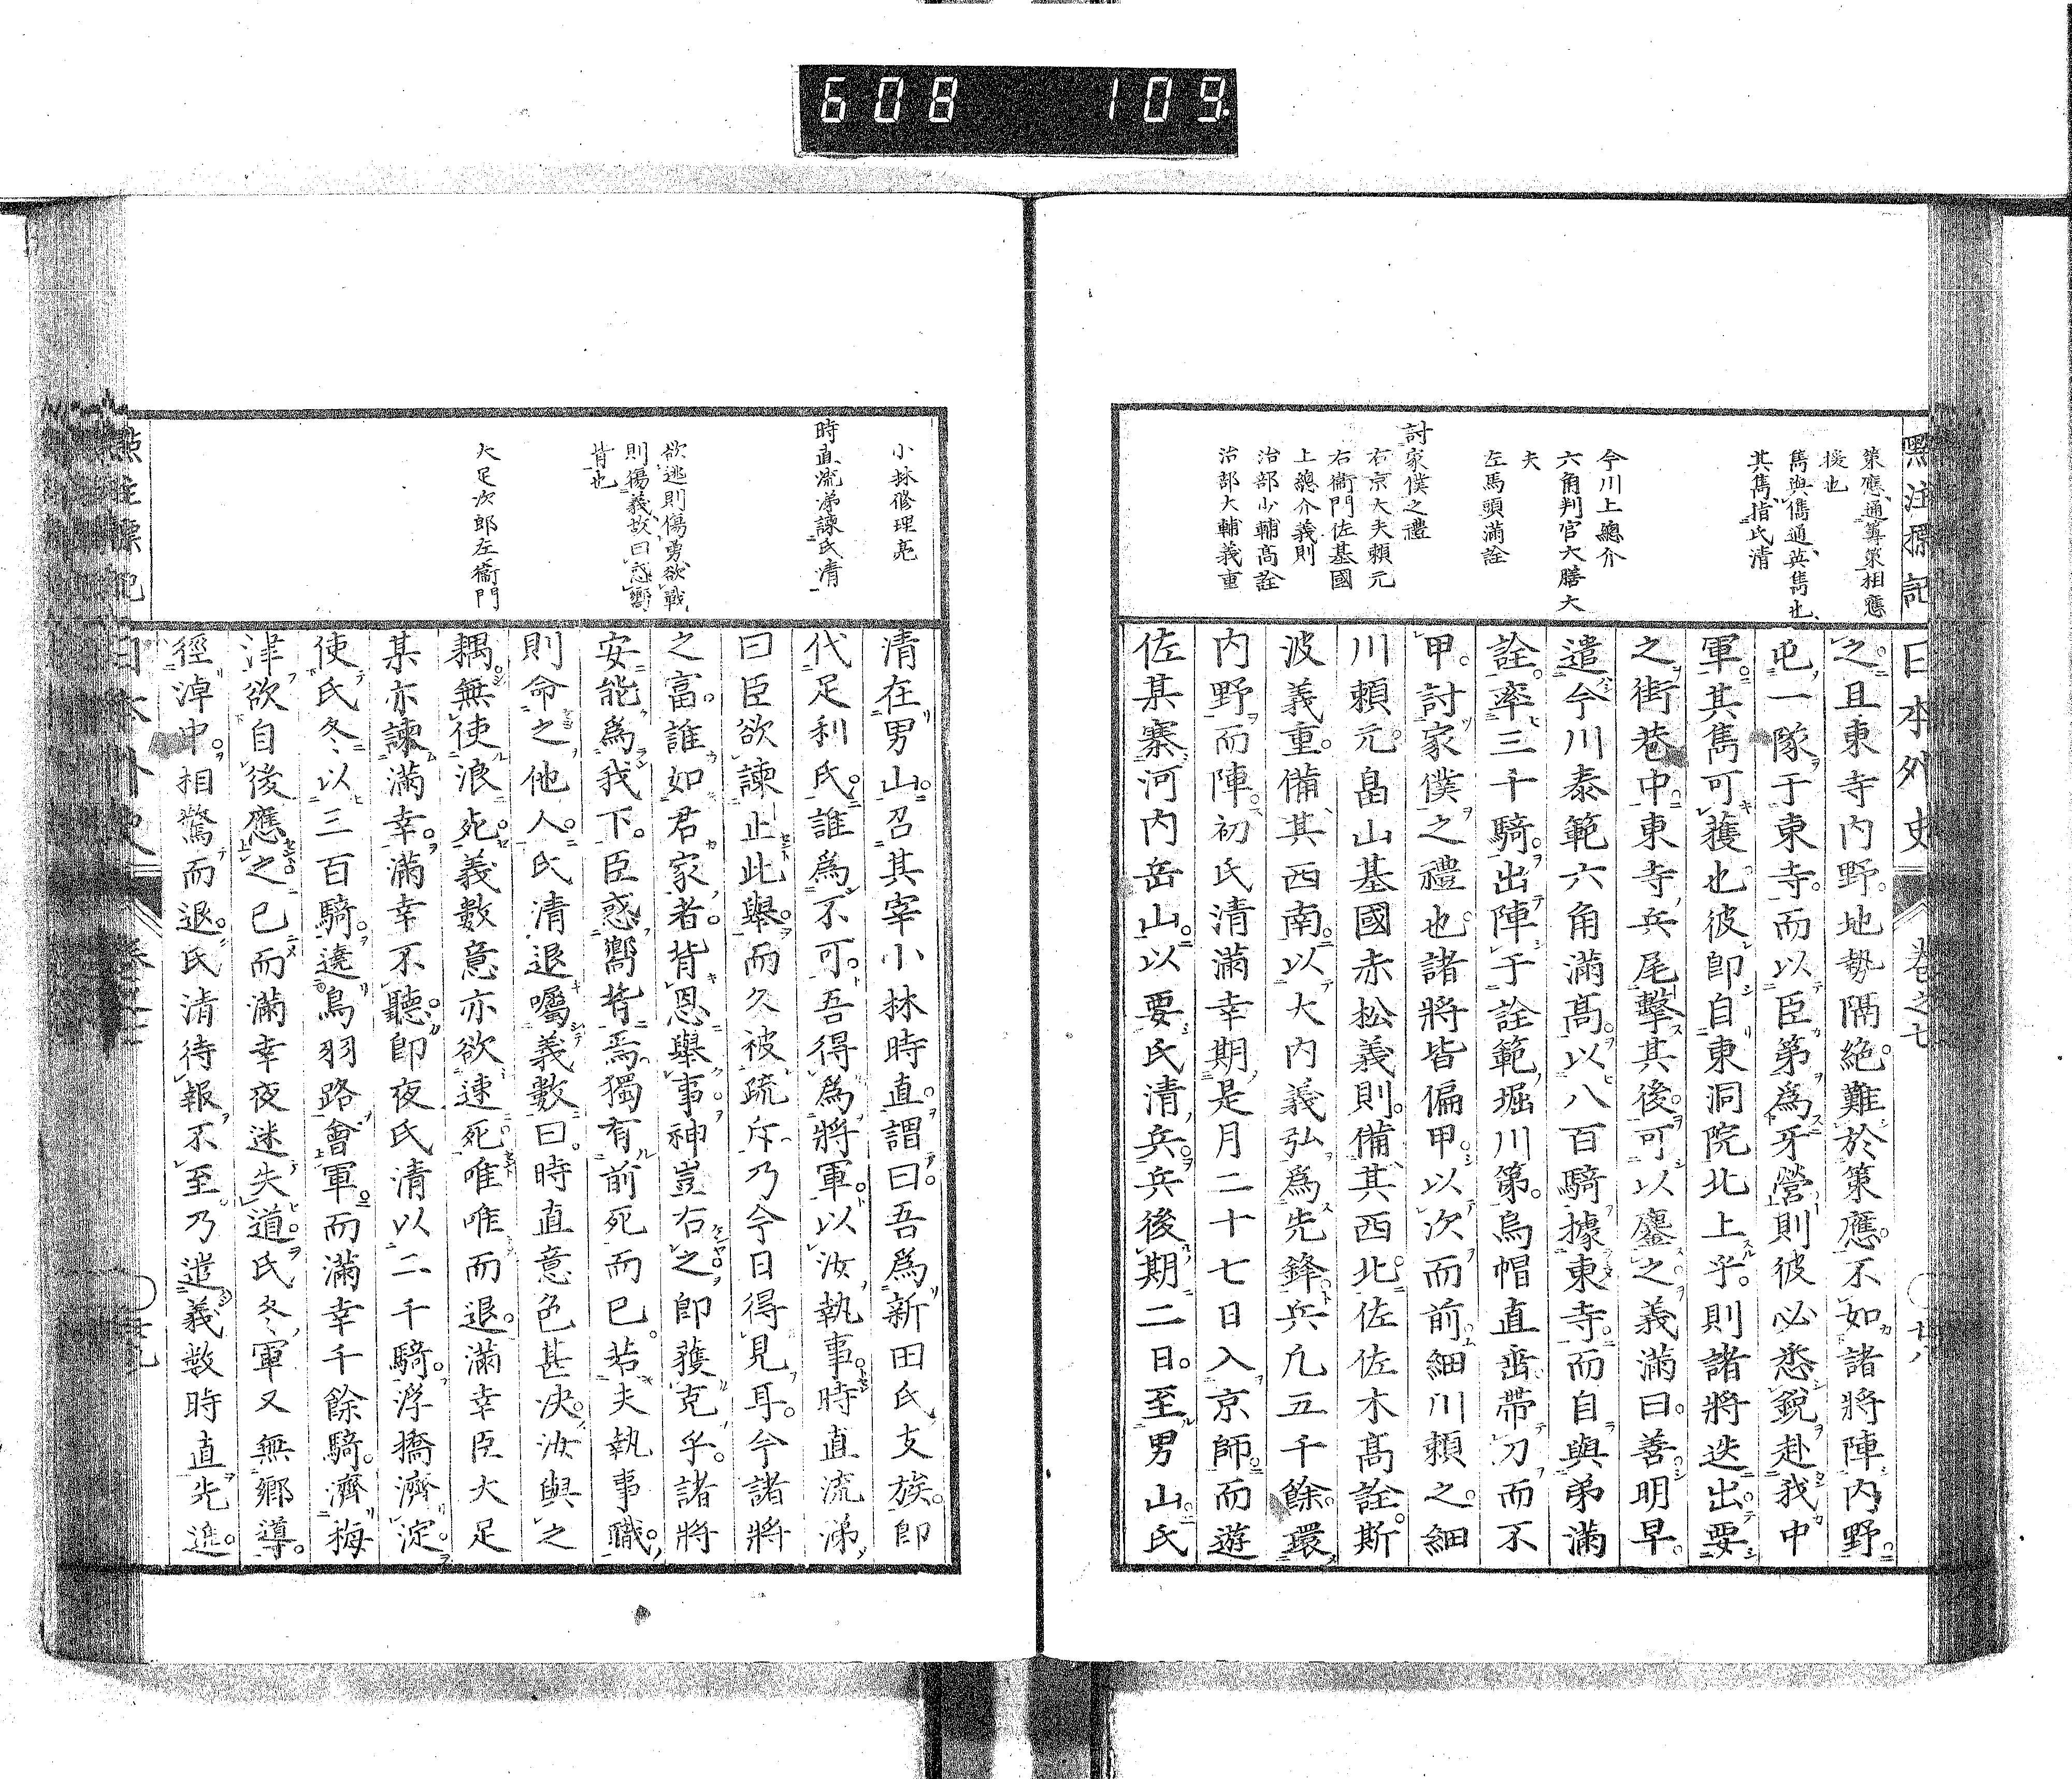 608 109
點注標記 日本外史 卷之七 廿八
策應通籌策相應
援也
雋與儁通英雋也
其雋指氏清
今川上總介
六角判官大膳大
夫
左馬頭滿詮
討家僕之禮
右京大夫賴元
右衞門佐基國
上總介義則
治部少輔高詮
治部大輔義重
之且東寺内野地勢隔絶難於策應不如諸將陣内野
屯一隊于東寺而以臣第爲牙營則彼必悉銳赴我中
軍其雋可獲也彼卽自東洞院北上乎則諸將迭出要
之街巷中東寺兵尾擊其後可以鏖之義滿曰善明早
遣今川泰範六角滿高以八百騎據東寺而自與弟滿
詮率三千騎出陣于詮範堀川第烏帽直垂帶刀而不
甲討家僕之禮也諸將皆偏甲以次而前細川賴之細
川賴元畠山基國赤松義則備其西北佐佐木高詮斯
波義重備其西南以大内義弘爲先鋒兵凡五千餘環
内野而陣初氏清滿幸期是月二十七日入京師而遊
佐某寨河内岳山以要氏清兵兵後期二日至男山氏
小林修理亮
時直流涕諫氏清
欲逃則傷勇欲戰
則傷義故曰惑嚮
背也
大足次郎左衞門
清在男山召其宰小林時直謂曰吾爲新田氏支族卽
代足利氏誰爲不可吾得爲將軍以汝執事時直流涕
曰臣欲諫止此舉而久被疏斥乃今日得見耳今諸將
之富誰如君家者背恩舉事神豈右之卽獲克乎諸將
安能爲我下臣惑嚮背焉獨有前死而已若夫執事職
則命之他人氏清退囑義數曰時直意色甚決汝與之
耦無使浪死義數意亦欲速死唯唯而退滿幸臣大足
某亦諫滿幸滿幸不聽卽夜氏清以二千騎浮橋濟淀
使氏冬以三百騎遶鳥羽路會軍而滿幸千餘騎濟梅
津欲自後應之已而滿幸夜迷失道氏冬軍又無鄉導
徑淖中相驚而退氏清待報不至乃遣義數時直先進
點注標記 日本外史 卷之七